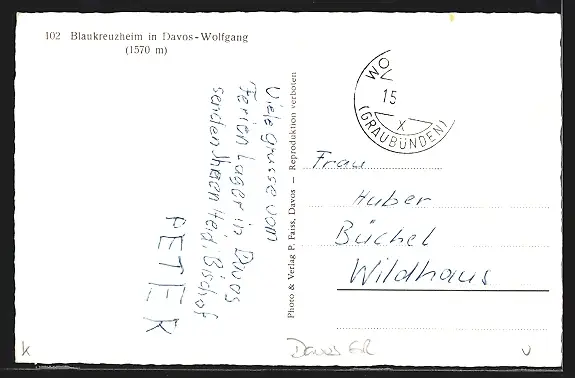 102 Blaukreuzheim in Davos-Wolfgang
(1570 m)
Viele grüsse vom
Ferien Lager in Davos
senden Ihnen Heidi, Bischof
PETER
Photo & Verlag P. Faiss, Davos – Reproduktion verboten
WOL
15
X
(GRAUBÜNDEN)
Frau
Huber
Büchel
Wildhaus
Davos GR
K
v